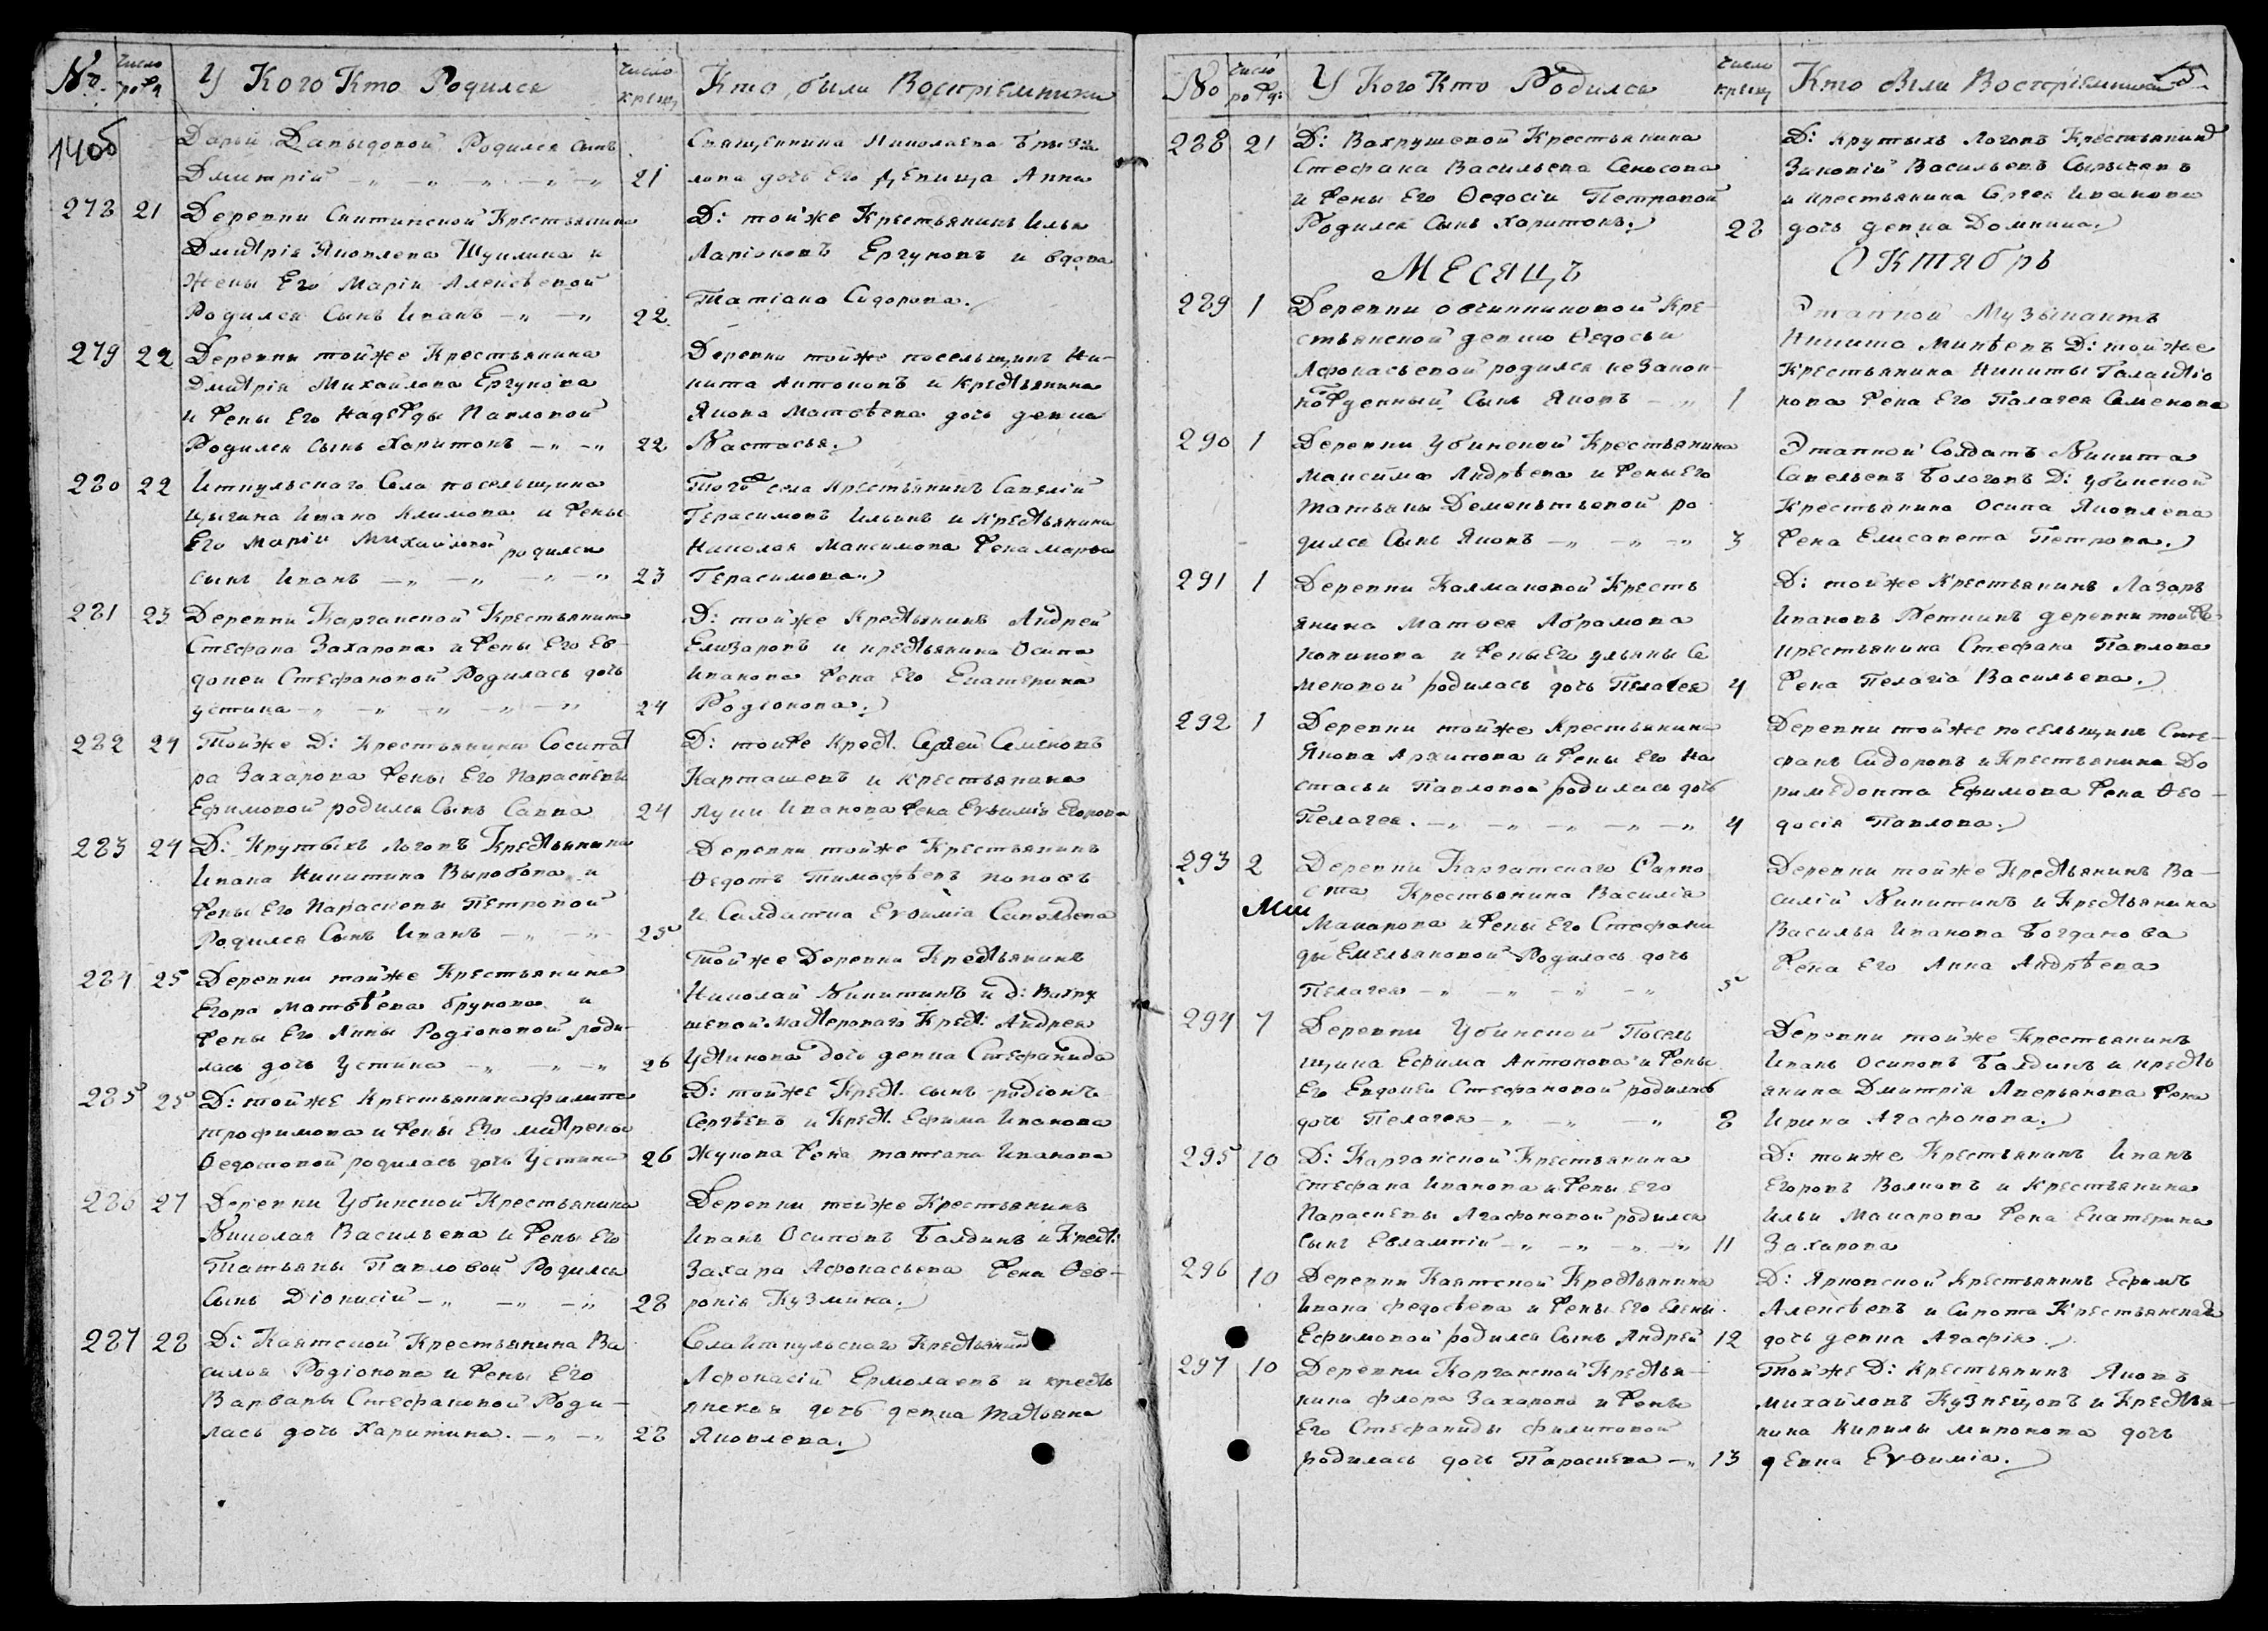 №. число рожд. У Кого Кто Родился число крещ. Кто были Воспріемники
14об
Дарьи Давыдовой Родился сынъ
Дмитрій 21
Священника Николаева
дочь Его девица Анна
278 21 Деревни Скитинской Крестьянина
Дмитрія Яковлева Шуклина и
Жены Его Маріи Алексѣевой
Родился Сынъ Иванъ 22
Д: тойже Крестьянинъ Илья
Ларіоновъ Ергуновъ и вдова
Татіана Сидорова.
279 22 Деревни тойже Крестьянина
Дмитрія Михайлова Ергунова
и жены Его Надежды Павловой
Родился сынъ Харитонъ 22
Деревни тойже посельщикъ Ни-
кита Антоновъ и крестьянина
Якова Матвѣева дочь девка
Настасья.
280 22 Иткульскаго Села посельщика
Цыгана Ивана Климова и жены
Его Маріи Михайловой родился
сынъ Иванъ 23
Тогожъ села крестьянинъ Савелій
Герасимовъ Ильинъ и крестьянина
Николая Максимова жена марья
Герасимова.
281 23 Деревни Карганской Крестьянина
Стефана Захарова и жены Его Ев-
докеи Стефановой Родилась дочь
устина 24
Д: тойже Крестьянинъ Андрей
Елизаровъ и крестьянина Осипа
Иванова жена Его Екатерина
Родіонова.
282 24 Тойже Д: Крестьянина Сосипат
ра Захарова жены Его Парасковьи
Ефимовой родился Сынъ Савва 24
Д: тойже крест. Сергей Семеновъ
Карташевъ и крестьянина
Луки Иванова жена Евѳимія Егорова
283 24 Д: Крутыхъ Логовъ Крестьянина
Ивана Никитина Выробова и
жены Его Параскевы Петровой
Родился Сынъ Иванъ 25
Деревни тойже Крестьянинъ
Ѳедотъ Тимофѣевъ Поповъ
и Салдатка Евѳимія Савельева
284 25 Деревни тойже Крестьянина
Егора Матвѣева брунова и
жены Его Анны Родіоновой роди-
лась дочь Устина 26
Тойже Деревни Крестьянинъ
Николай Никитинъ и д: Вахру
шевой мастероваго Крест: Андрея
Устинова дочь девка Стефанида
285 25 Д: тойже Крестьянина филипа
трофимова и жены Его матрены
Ѳедотовой родилась дочь Устина 26
Д: тойже Крест. сынъ родіонъ
Сергѣевъ и Крест. Ефима Иванова
Жукова жена татіана Иванова
286 27 Деревни Убинской Крестьянина
Николая Васильева и жены Его
Татьяны Павловой Родился
Сынъ Діонисій 28
Деревни тойже Крестьянинъ
Иванъ Осиповъ Балдинъ и Крест:
Захара Афонасьева жена Ѳев-
ронія Кузмина.
287 28 Д: Каятской Крестьянина Ва
силья Родіонова и жены Его
Варвары Стефановой Роди-
лась дочь Харитина. 28
Села Иткульскаго Крестьянинъ
Афонасій Ермолаевъ и кресть
янская дочь девка Татьяна
Яковлева.
№ число рожд: У Кого Кто Родился число крещ. Кто были Воспріемники 15.
288 21 Д: Вахрушевой Крестьянина
Стефана Васильева Сеносова
и жены Его Ѳедосіи Петровой
Родился Сынъ Харитонъ. 28
Д: Крутыхъ Логовъ Крестьянинъ
Зиновій Васильевъ Сычевъ
и крестьянина Сергея Иванова
дочь девка Домника.
МЕСЯЦЪ ОКТЯбрь
289 1 Деревни овчинниковой Кре-
стьянской девки Ѳедосьи
Афонасьевой родился незакон-
порожденный Сынъ Яковъ 1
Этапной Музыкантъ
Никита Минѣевъ Д: тойже
Крестьянина Никиты Галактіо
нова жена Его Палагея Семенова
290 1 Деревни Убинской Крестьянина
Максима Андрѣева и жены Его
Татьяны Деменьтьевой ро
дился Сынъ Яковъ 3
Этапной Солдатъ Никита
Савельевъ Бологовъ Д: убинской
Крестьянина Осипа Яковлева
жена Елисавета Петрова.
291 1 Деревни Калмаковой Кресть
янина Матвея Абрамова
и жены Его ульяны Се
меновой родилась дочь Пелагея 4
Д: тойже Крестьянинъ Лазарь
Ивановъ деревни тойже
крестьянина Стефана Павлова
жена Пелагіа Васильева.
292 1 Деревни тойже Крестьянина
Якова Архипова и жены Его На
стасьи Павловой родилась дочь
Пелагея. 4
Деревни тойже посельщикъ Сте-
фанъ Сидоровъ и Крестьянина До
римедонта Ефимова жена Ѳео-
досія Павлова.
293 2 Деревни Каргатскаго Фарпо
ста Крестьянина Василіа
Макарова и жены Его Стефани
ды Емельяновой Родилась дочь
Пелагея 5
Деревни тойже Крестьянинъ Ва-
силій Никитинъ и Крестьянина
Василья Иванова Богданова
жена Его Анна Андрѣева
294 7 Деревни Убинской Посель
щика Ефима Антонова и жены
Его Евдокеи Стефановой родилась
дочь Пелагея 8
Деревни тойже Крестьянинъ
Иванъ Осиповъ Балдинъ и кресть
янина Дмитрія Аверьянова жена
Ирина Агафонова.
295 10 Д: Карганской Крестьянина
Стефана Иванова и жены Его
Параскевы Агафоновой родился
сынъ Евлампій 11
Д: тойже Крестьянинъ Иванъ
Егоровъ Волковъ и Крестьянина
Ильи Макарова жена Екатерина
Захарова
296 10 Деревни Каятской Крестьянина
Ивана федосѣева и жены Его Елены
Ефимовой родился Сынъ Андрей 12
Д: Ярковской Крестьянинъ Ефимъ
Алексѣевъ и Сирота Крестьянская
дочь девка Агафія.
297 10 Деревни Карганской Крестья-
нина флора Захарова и жены
Его Стефаниды филиповой
родилась дочь Параскева 13
Тойже Д: Крестьянинъ Яковъ
михайловъ Кузнецовъ и Крестья-
нина Кирилы миронова дочь
девка Евѳиміа.